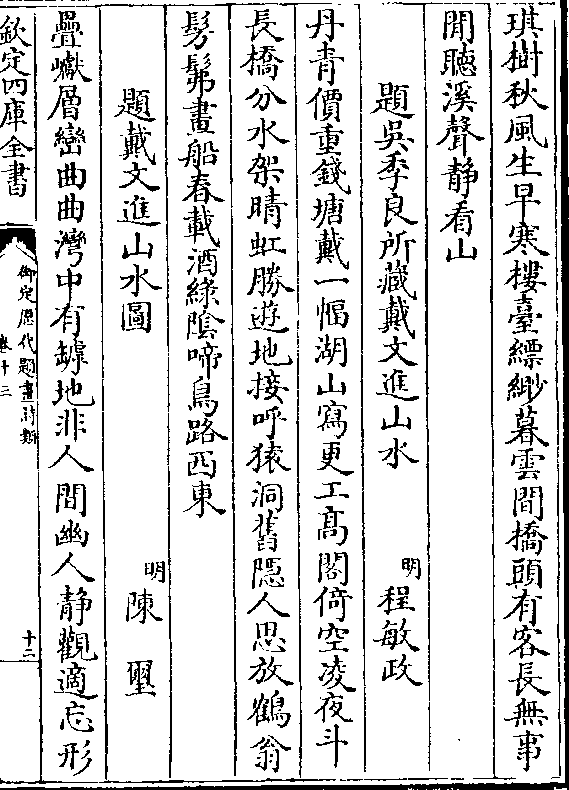 琪樹秋風生早寒樓臺縹緲暮雲間橋頭有客長無事
閒聽溪聲静看山
題吳季良所藏戴文進山水　明程敏政
丹青價重錢塘戴一幅湖山寫更工髙閣倚空凌夜斗
長橋分水架晴虹勝遊地接呼猿洞舊隠人思放鶴翁
髣髴畫船春載酒綠陰啼鳥路西東
題戴文進山水圖　明陳壐
疊巘層巒曲曲灣中有罅地非人間幽人静觀適忘形
欽定四庫全書
御定歴代題畫詩類
卷十三
十二